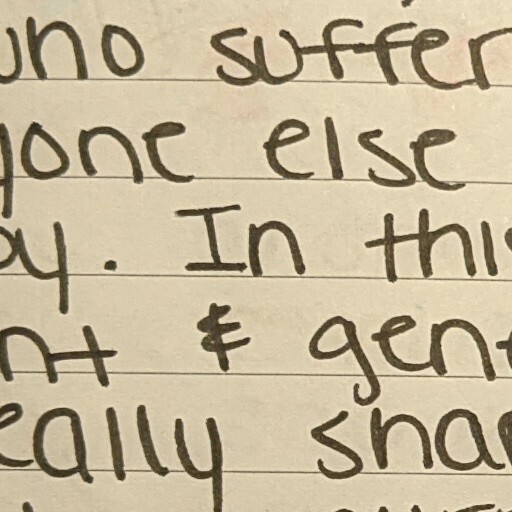 uno suffer
yone else
oy. In this
nt & gent
eally shar